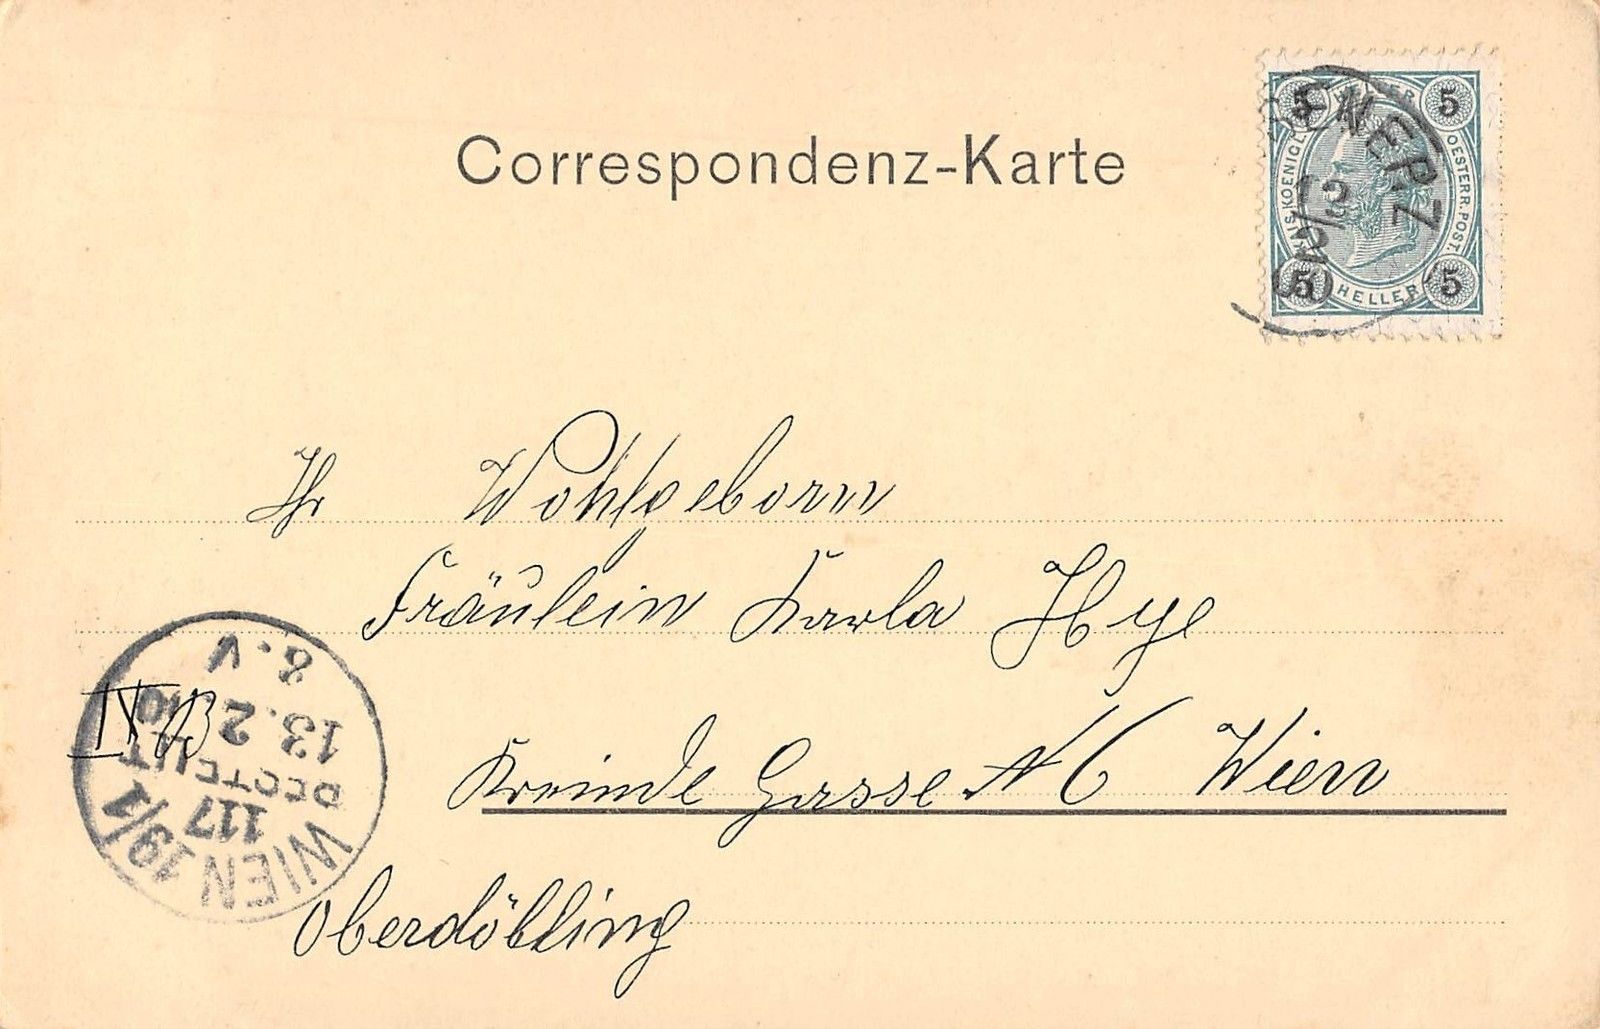 Correspondenz-Karte
5 HELLER 5
KAIS. KOENIGL. OESTERR. POST.
5 HELLER 5
12/2
Ihr Wohlgeborn
Fräulein Karla Hye
Gasse N 6 Wien
Oberdöbling
IXB
WIEN 19/1
117
BESTELLT
13.2.
8.V